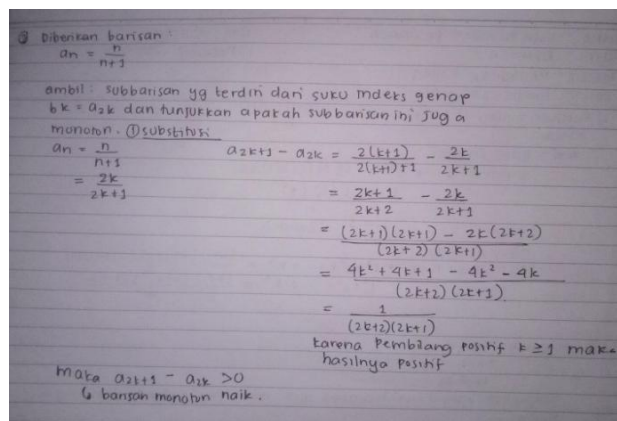 ③ Diberikan barisan :
an = n/n+1
ambil : subbarisan yg terdiri dari suku indeks genap
bk = a2k dan tunjukkan apakah subbarisan ini juga
monoton. ① substitusi
an = n/n+1
= 2k/2k+1
a2k+1 - a2k = 2(k+1)/2(k+1)+1 - 2k/2k+1
= 2k+1/2k+2 - 2k/2k+1
= (2k+1)(2k+1) - 2k(2k+2)/(2k+2)(2k+1)
= 4k² + 4k + 1 - 4k² - 4k/(2k+2)(2k+1)
= 1/(2k+2)(2k+1)
karena pembilang positif k ≥ 1 mak
hasilnya positif
maka a2k+1 - a2k > 0
↳ barisan monoton naik.